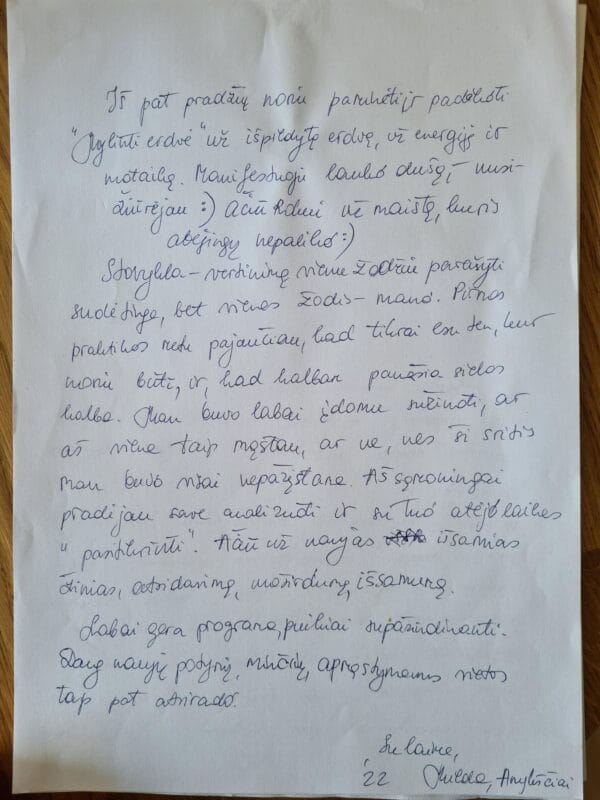 Iš pat pradžių noriu paminėti ir padėkoti
"Mylinti erdvė" už išpildytą erdvę, už energiją ir
motaiką. Manifestuoju lauko dušą, – nusi-
žiūrėjau :) Ačiū Rdmi už maistą, kuris
abejingų nepaliko :)
Stovykla – vertinimą vienu žodžiu parašyti
sudėtinga, bet vienas žodis – mano. Pirmos
praktikos metu pajaučiau, kad tikrai esu ten, kur
noriu būti, ir, kad kalbam panašia sielos
kalba. Man buvo labai įdomu sužinoti, ar
aš viena taip mąstau, ar ne, nes ši sritis
man buvo visai nepažįstama. Aš sąmoningai
pradėjau save analizuoti ir su tuo atėjo laikas
"pasitikrinti". Ačiū už naujas išsamias
žinias, atsidavimą, nuoširdumą, išsamumą.
Labai gera programa, puikiai supažindinanti.
Daug naujų potyrių, minčių, apmąstymams vietos
taip pat atsirado.
Su laime,
'22 Milda, Anykščiai